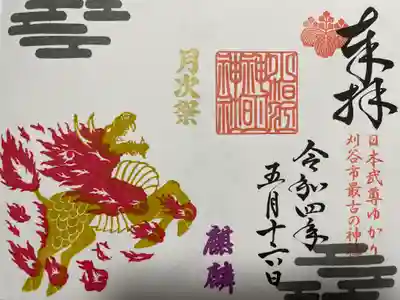 奉拝
日本武尊ゆかり
刈谷市最古の神
小垣江神明神社
令和四年
五月十六日
月次祭
麒麟